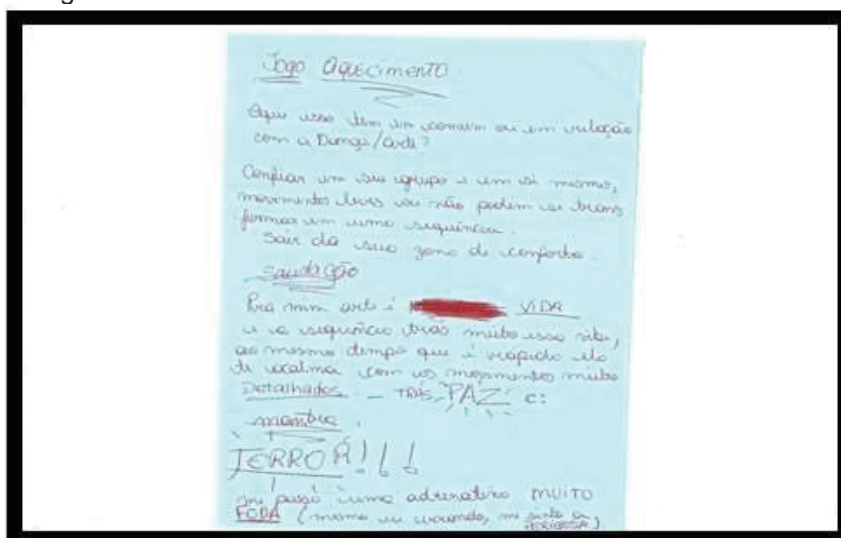 Jogo Aquecimento
O que isso tem em comum ou em relação
com a Dança/arte?
Confiar em seu grupo e em si mesmo,
movimentos leves ou não podem se trans
formar em uma sequência.
Sair da sua zona de conforto.
Saudação
Pra mim arte é VIDA
e a sequência trás muito essa vibe,
ao mesmo tempo que é rápido ela
te acalma com os movimentos muito
Detalhados - TRÁS PAZ c:
TERROR!!!
me puxa uma adrenalina MUITO
FODA (mesmo eu errando, me sinto a
PERIGOSA)